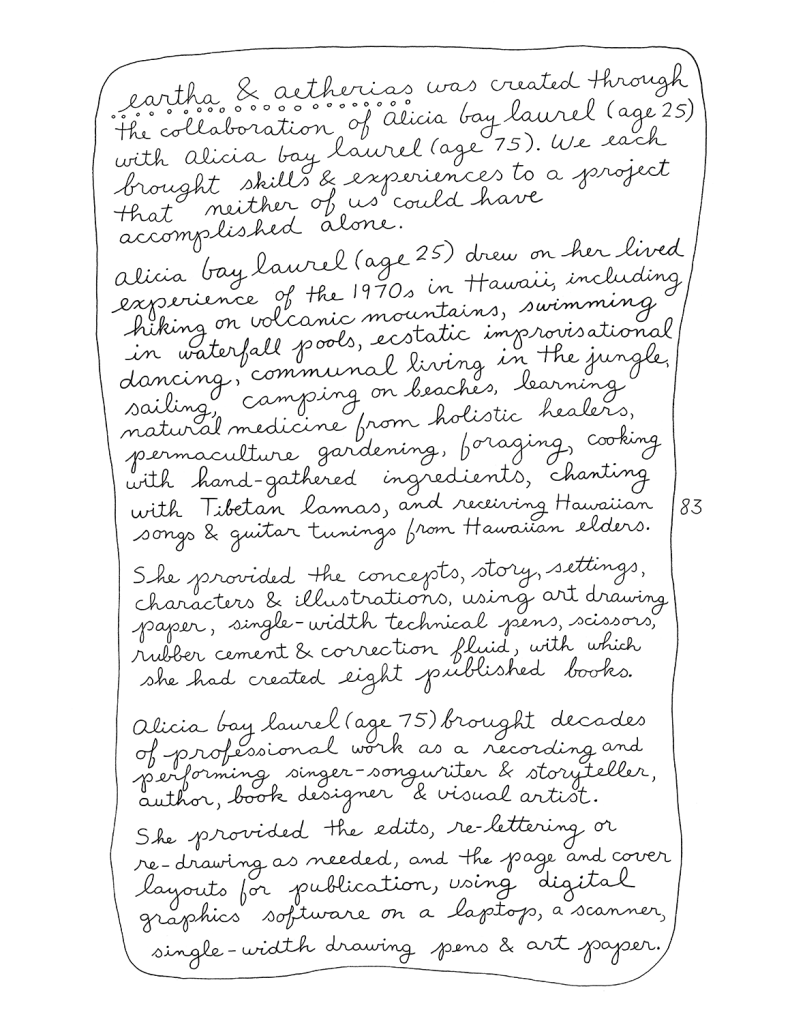 eartha & aetherias was created through
the collaboration of Alicia bay laurel (age 25)
with Alicia bay laurel (age 75). We each
brought skills & experiences to a project
that neither of us could have
accomplished alone.
Alicia bay laurel (age 25) drew on her lived
experience of the 1970s in Hawaii, including
hiking on volcanic mountains, swimming
in waterfall pools, ecstatic improvisational
dancing, communal living in the jungle,
sailing, camping on beaches, learning
natural medicine from holistic healers,
permaculture gardening, foraging, cooking
with hand-gathered ingredients, chanting
with Tibetan lamas, and receiving Hawaiian
songs & guitar tunings from Hawaiian elders.
83
She provided the concepts, story, settings,
characters & illustrations, using art drawing
paper, single-width technical pens, scissors,
rubber cement & correction fluid, with which
she had created eight published books.
Alicia bay laurel (age 75) brought decades
of professional work as a recording and
performing singer-songwriter & storyteller,
author, book designer & visual artist.
She provided the edits, re-lettering or
re-drawing as needed, and the page and cover
layouts for publication, using digital
graphics software on a laptop, a scanner,
single-width drawing pens & art paper.